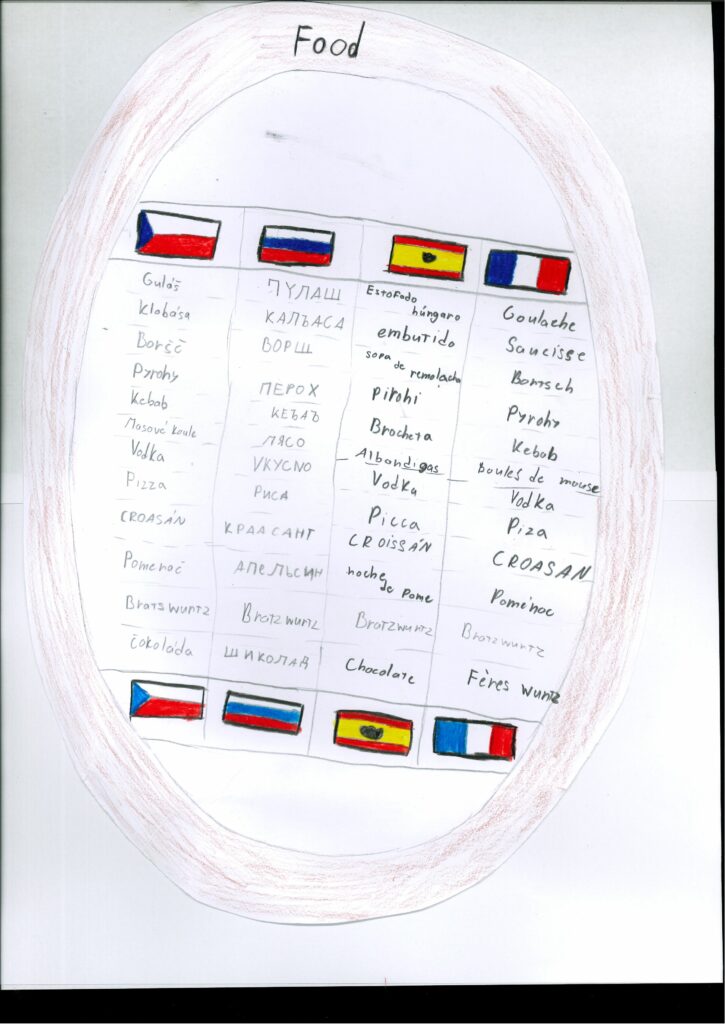 Food
Guláš ПУЛАШ Estofado húngaro Goulache
klobása КАЛЪАСА embutido Saucisse
Boršč ВОРЩ sopa de remolacha Bortsch
Pyrohy ПЕРОХ pirohi Pyrohy
Kebab КЕЪАЪ Brocheta Kebab
Masové koule ЛЯСО Albandigas boules de mouse
Vodka VКУСNО Vodka Vodka
Pizza РИСА Picca Piza
CROASÁN КРААСАНТ CROISSÁN CROASAN
Pomenač АПЕЛЬСИН noche de Pome Poménac
Bratswurtz Bratzwurtz Bratzwurtz Bratzwurtz
čokoláda ШИКОЛАД Chocolate Fères wurtz